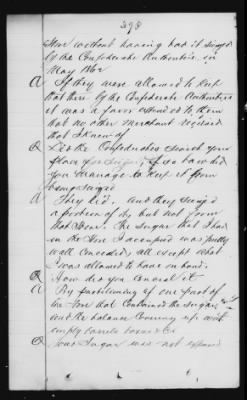 398
Store without having had it seized
by the Confederate Authorities, in
May 1862
A If they were allowed to keep
that there by the Confederate Authorities
it was a favor extended to them
that no other merchant received
that I know of
Q Did the Confederates search your
place for Sugar, if so how did
you manage to keep it from
being seized
A They did. And they seized
a portion of it, but not from
that Store. The Sugar that I had
in the Store I occupied was pretty
well concealed, all except what
I was allowed to have on hand.
Q How did you conceal it
A By partitioning off one part of
the Store that contained the Sugar,
and the balance covering up with
empty barrels boxes &c
Q Your Sugar was not